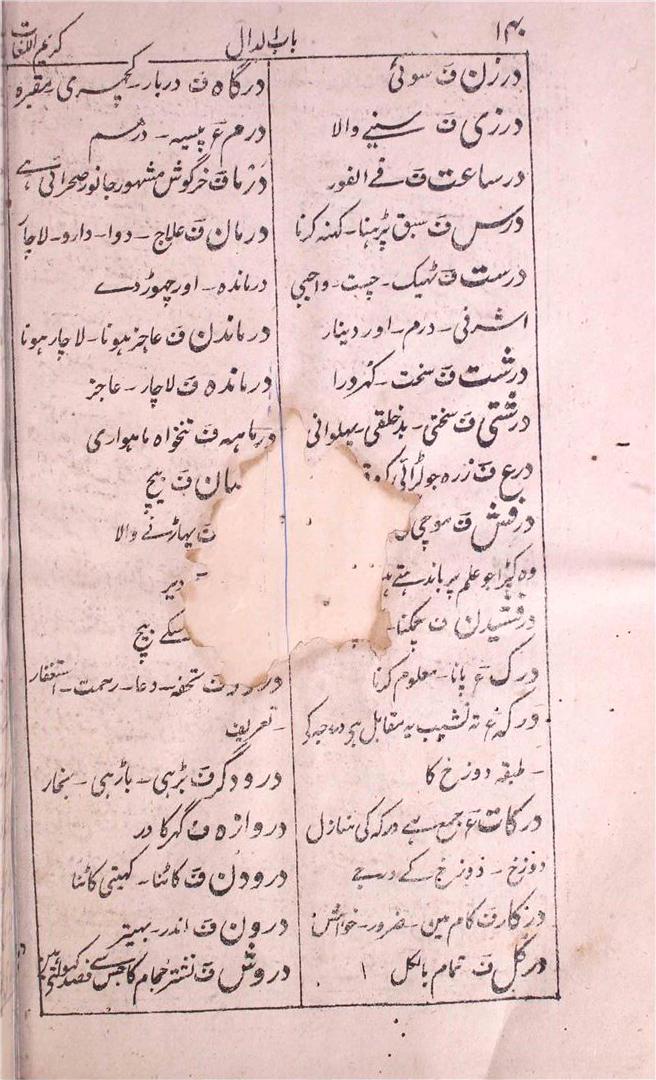 ۱۴۸ باب الدال کریم اللغات
درزن ف سوئی
درزی ف سینے والا
درساعت ف فے الفور
درس ف سبق پڑہنا۔ کہنہ کرنا
درست ف ٹہیک۔ چست۔ واجبی
اشرفی۔ درم۔ اور دینار
درشت ف سخت۔ کہردرا
درشتی ف سختی۔ بدخلقی۔ پہلوانی
درع ف زرہ جو لڑائی
درفش ف موچی
وہ کپڑا جو علم پر باندہتے
درفشیدن ف چمکنا۔
درک ع پانا۔ معلوم کرنا
درکہ ع تہ نشیب یہ مقابل ہے درجہ کی
۔ طبقہ دوزخ کا
درکات ع جمع ہے درکہ کی منازل
دوزخ۔ دوزخ کے درجے
درکار ف کام مین۔ ضرور۔ خواہش
درکل ف تمام بالکل ۱
درگاہ ف دربار۔ کچہری مقبرہ
درم ع پیسہ۔ درہم
درما ف خرگوش مشہور جانور صحرائی ہے
درمان ف علاج۔ دوا۔ دارو۔ لاچار
درماندہ۔ اور چہوڑ دے
درماندن ف عاجز ہونا۔ لاچار ہونا
درماندہ ف لاچار۔ عاجز
درماہہ ف تنخواہ ماہواری
ف بیچ
ف پہاڑنے والا
دیر
سکے بیچ
درود ف تحفہ۔ دعا۔ رحمت۔ استغفار
۔ تعریف
درودگر ف بڑہی۔ باڑہی۔ نجار
دروازہ ف گہر کا در
درودن ف کاٹنا۔ کہیتی کاٹنا
درون ف اندر۔ بہیتر
دروش ف نشتر حجام کا جس سے فصد کہولتے ہین